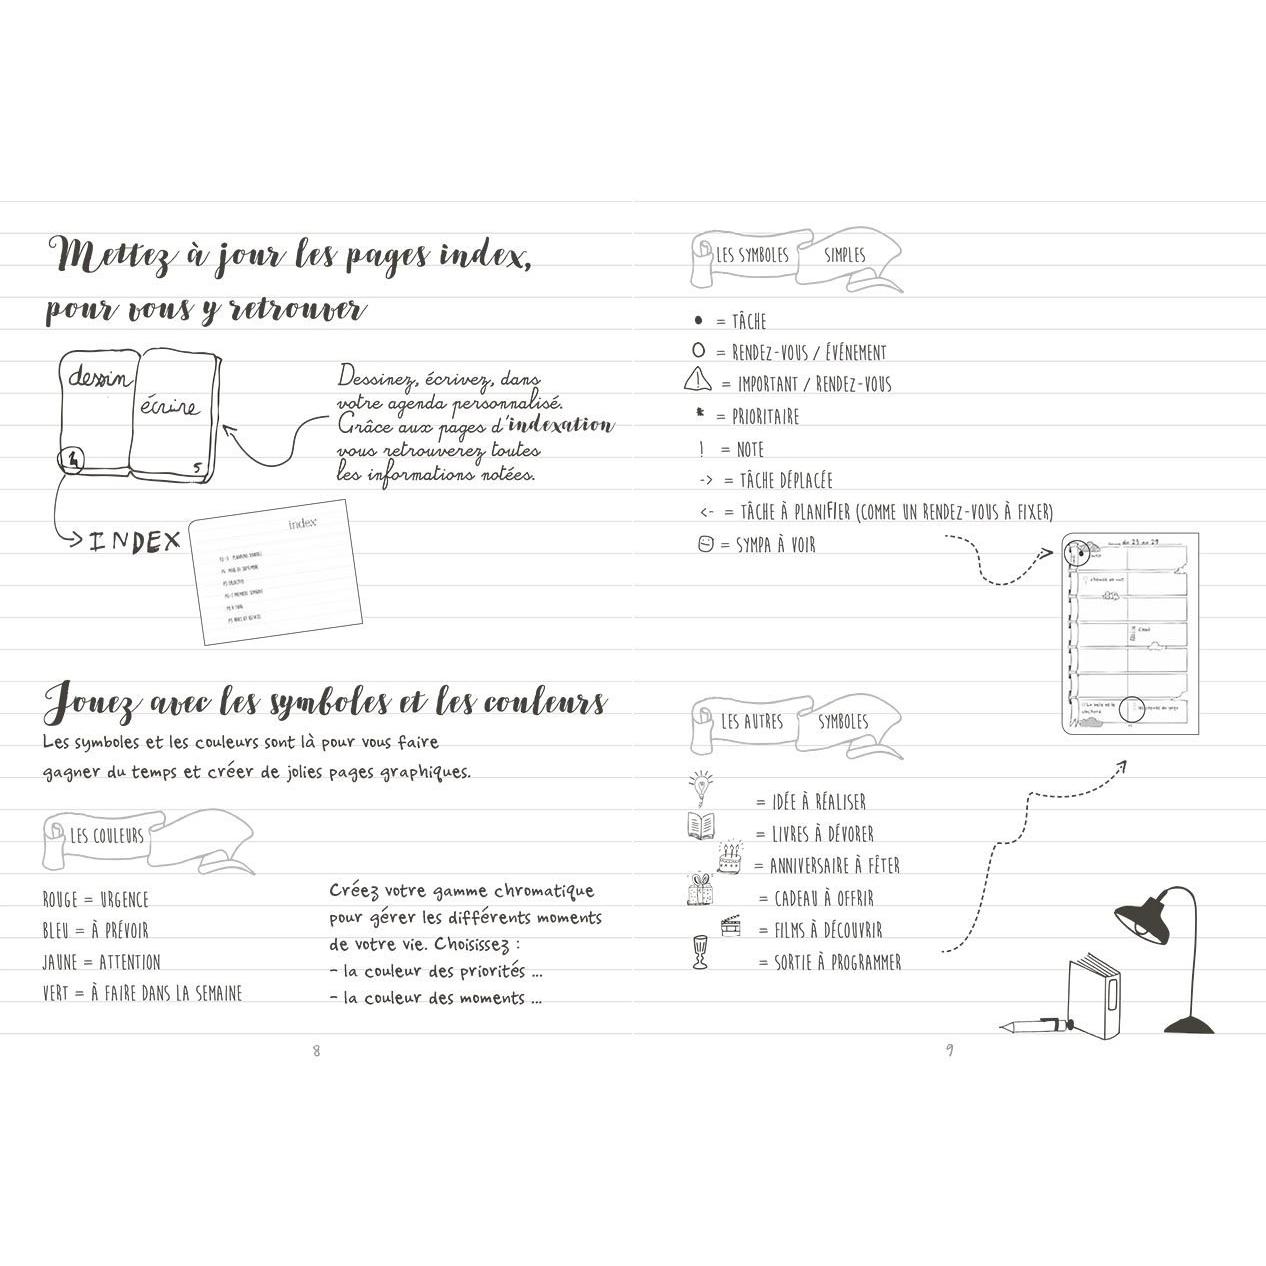 Mettez à jour les pages index,
pour vous y retrouver
dessin
écrire
4
5
Dessinez, écrivez, dans
votre agenda personnalisé.
Grâce aux pages d'indexation
vous retrouverez toutes
les informations notées.
INDEX
index
Jouez avec les symboles et les couleurs
Les symboles et les couleurs sont là pour vous faire
gagner du temps et créer de jolies pages graphiques.
LES COULEURS
ROUGE = URGENCE
BLEU = À PRÉVOIR
JAUNE = ATTENTION
VERT = À FAIRE DANS LA SEMAINE
Créez votre gamme chromatique
pour gérer les différents moments
de votre vie. Choisissez :
- la couleur des priorités ...
- la couleur des moments ...
8
LES SYMBOLES SIMPLES
• = TÂCHE
O = RENDEZ-VOUS / ÉVÉNEMENT
⚠ = IMPORTANT / RENDEZ-VOUS
* = PRIORITAIRE
! = NOTE
-> = TÂCHE DÉPLACÉE
<- = TÂCHE À PLANIFIER (COMME UN RENDEZ-VOUS À FIXER)
☺ = SYMPA À VOIR
du 23 au 29
LES AUTRES SYMBOLES
= IDÉE À RÉALISER
= LIVRES À DÉVORER
= ANNIVERSAIRE À FÊTER
= CADEAU À OFFRIR
= FILMS À DÉCOUVRIR
= SORTIE À PROGRAMMER
9